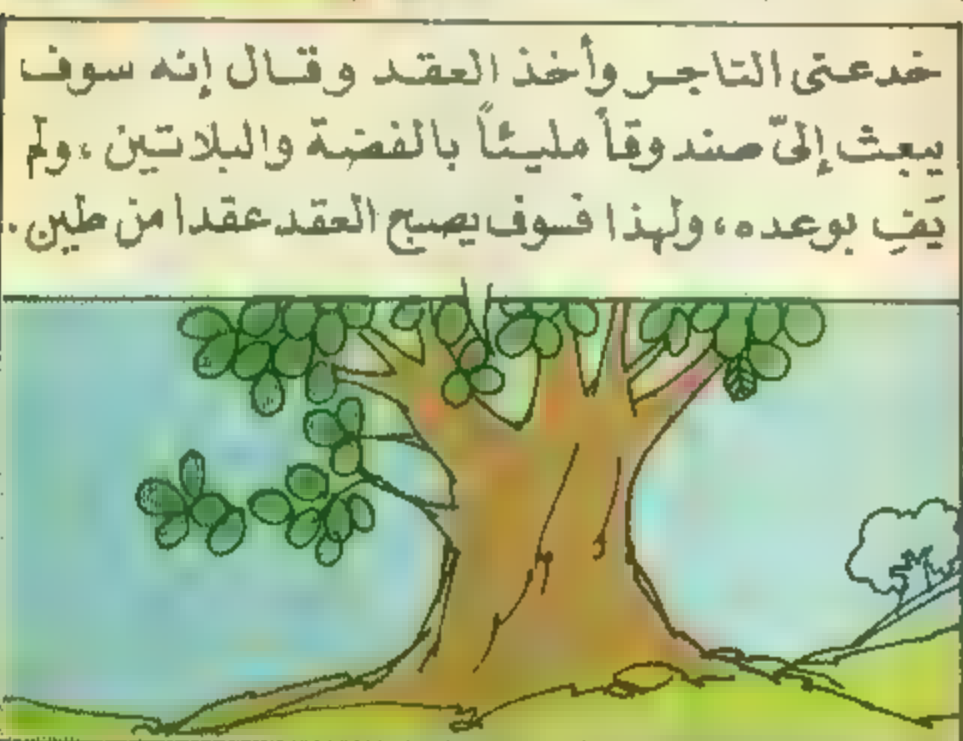 خدعتى التاجر وأخذ العقد وقال إنه سوف
يبعث إلىّ صندوقاً مليئاً بالفضة والبلاتين ، ولم
يَفِ بوعده ، ولهذا فسوف يصبح العقد عقدا من طين .